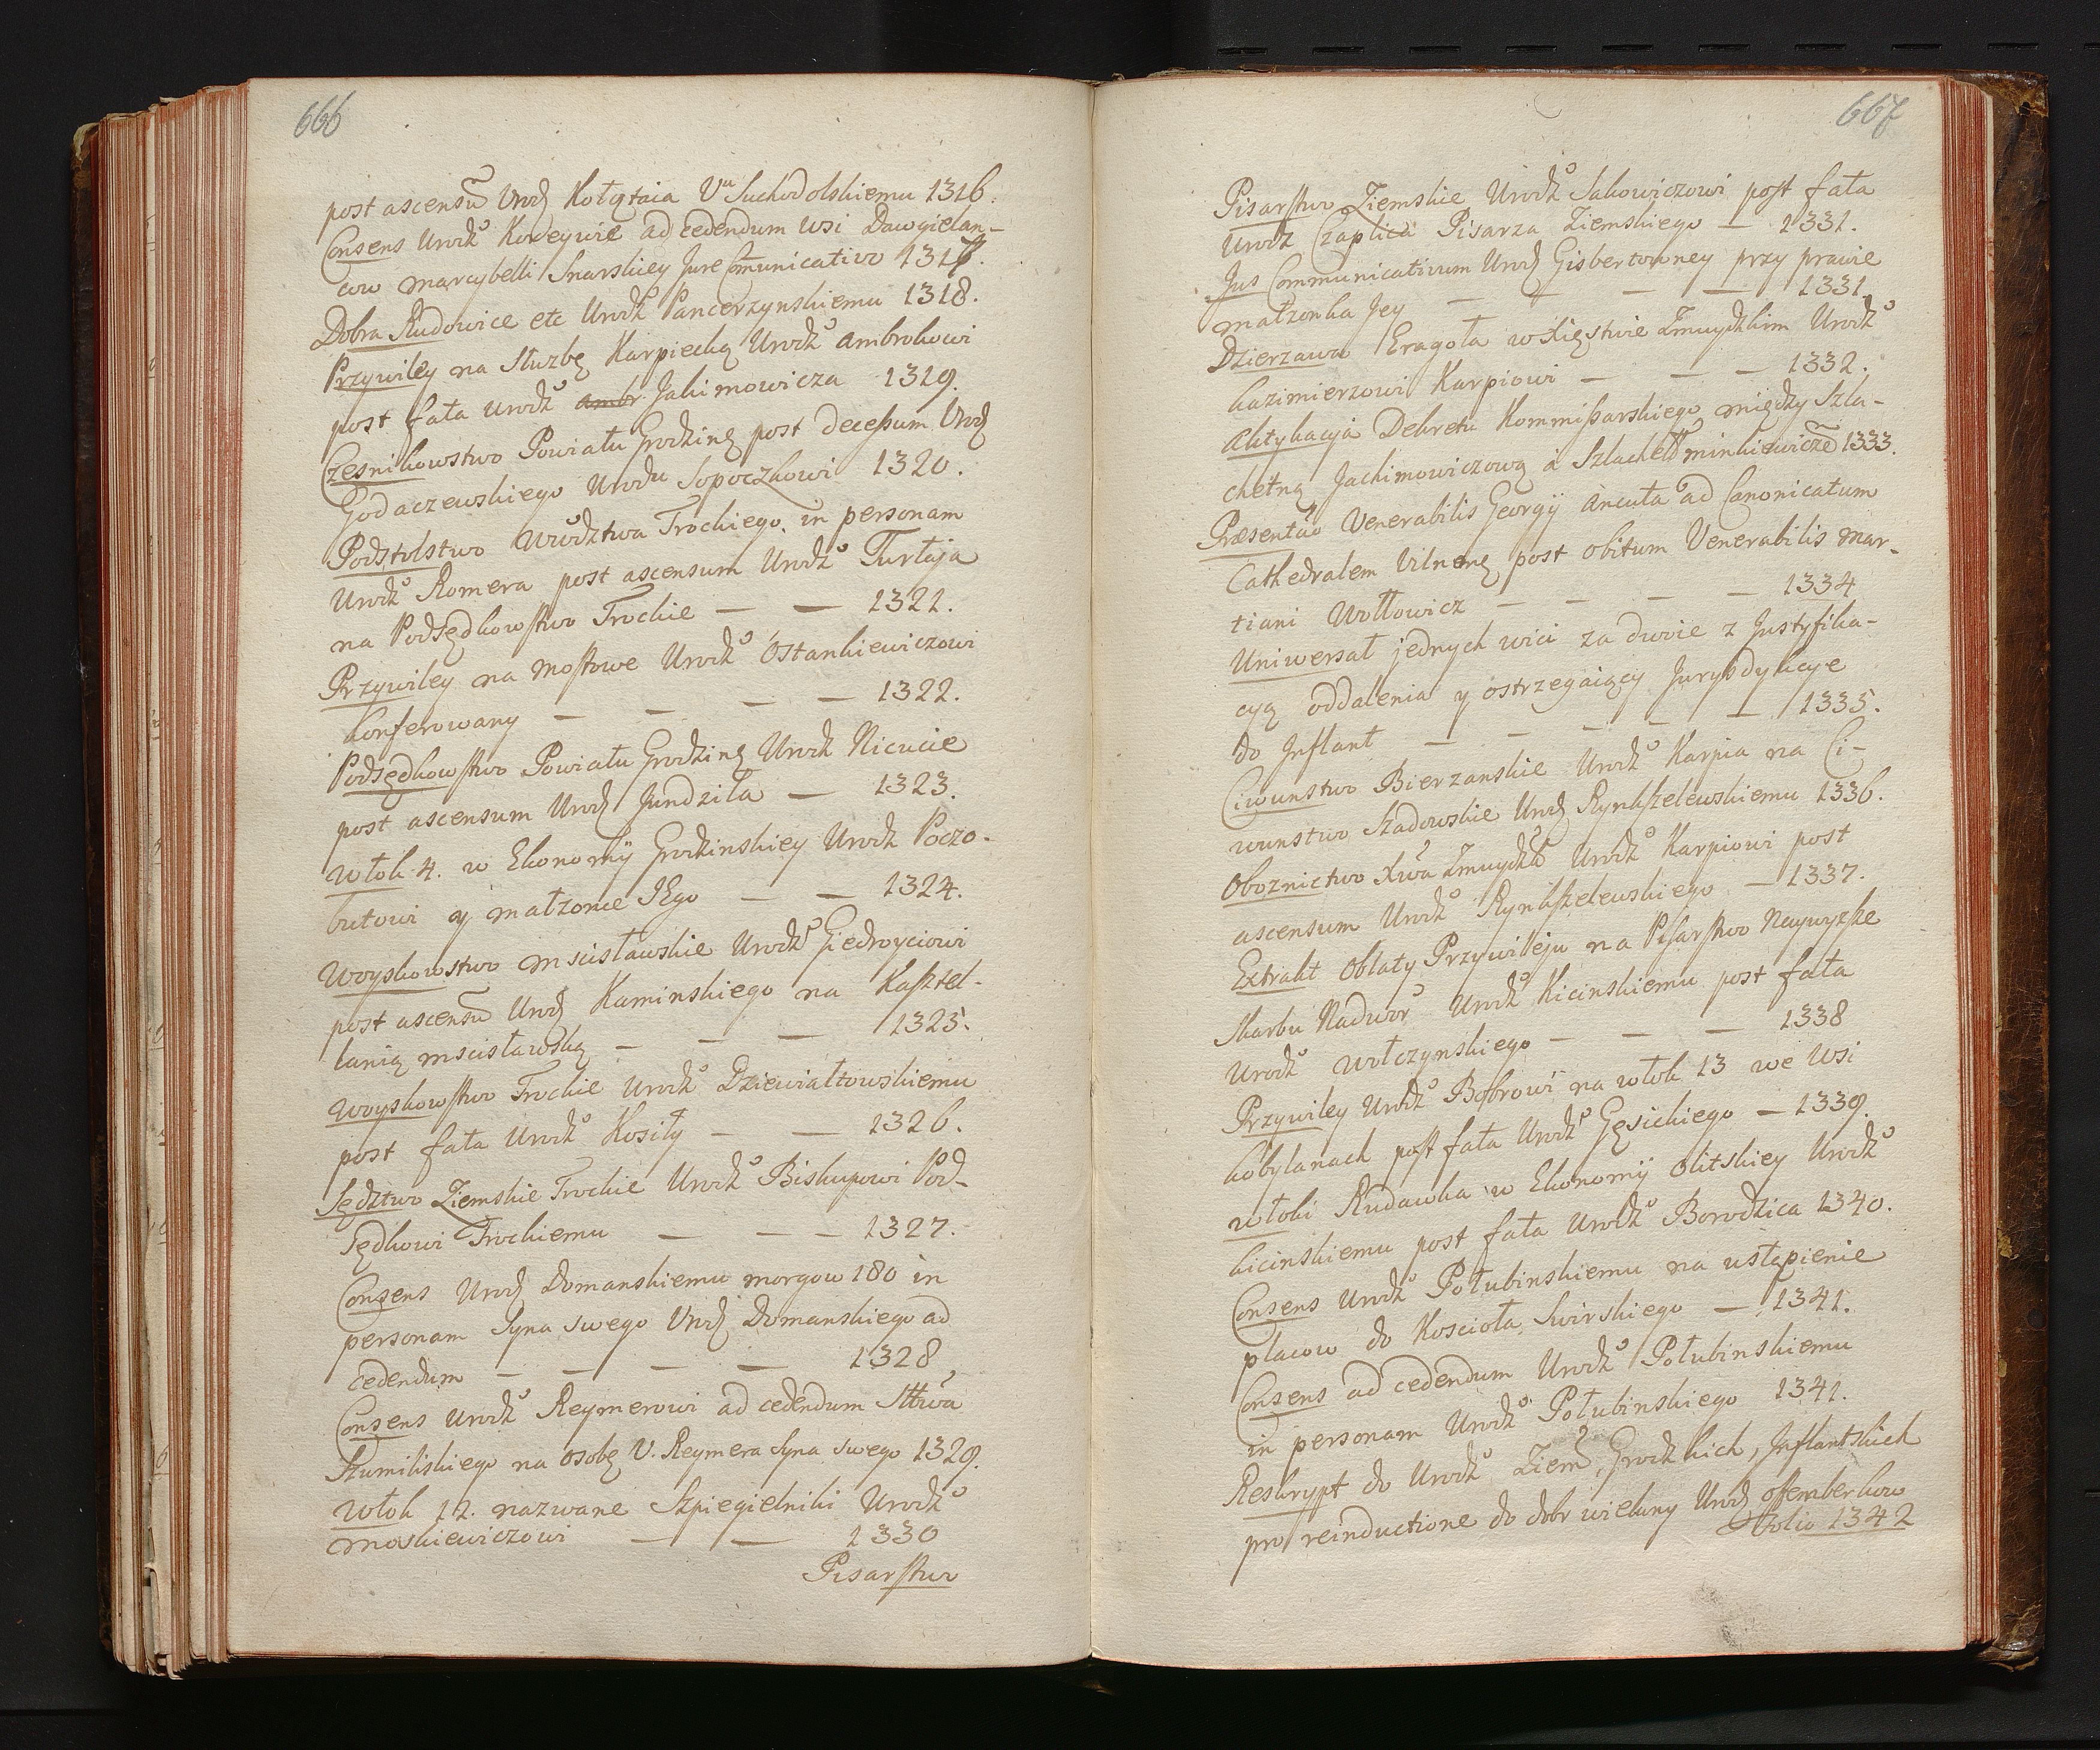 666
post ascensũ Urodz Kołątaia Uu Suchodolskiemu 1316.
Consens Urodzo Koweywie ad cedendum wsi Dawgielan-
cow Marcybelli Snarskiey Jure Comunicativo 1317.
Dobra Rudowice etc Urodzo Pancerzynskiemu 1318.
Przywiley na Służbę Karpiechę Urodzo Ambrokowi
post fata Urodzo Ambr. Jakimowicza 1319.
Czesnikowstwo Powiatu Grodzinę post decessum Urodz
Godaczewskiego Urodzu Sopoczkowi 1320.
Podstolstwo Wudztwa Trockiego, in personam
Urodzo Romera post ascensum Urodzo Turłaja
na Podsędkowstwo Trockie — — 1321.
Przywiley na Mostowe Urodzo Ostankiewiczowi
konferowany — — — — 1322.
Podsędkowstwo Powiatu Grodzinę Urodz Nicucie
post ascensum Urodz Jundziła — 1323.
Włok 4. w Ekonomÿ Grodzinskiey Urodz Poczo-
butowi y małzonce JEgo — — 1324.
Woyskowstwo Mscisławskie Urodzo Giedroyciowi
post ascensũ Urodz Kaminskiego na Kasztel-
lanią Mscisławską — — — 1325.
Woyskowstwo Trockie Urodzo Dziewiałtowskiemu
post fata Urodzo Kosiły — — 1326.
Sędztwo Ziemskie Trockie Urodzo Biskupowi Pod-
sędkowi Trockiemu — — — 1327.
Consens Urodz Domanskiemu morgow 180 in
personam Syna swego Urodz Domanskiego ad
cedendum — — — — 1328
Consens Urodzo Reymerowi ad cedendum Sttwa
Szumiliskiego na osobę U. Reymera Syna swego 1329.
Włok 12. nazwane Szpiegielniki Urodzo
Moskiewiczowi — — 1330
Pisarstwo
667
Pisarstwo Ziemskie Urodzo Sakowiczowi post fata
Urodz Czaplica Pisarza Ziemskiego — 1331.
Jus Communicativum Urodz Gisbertowney przy prawie
małzonka Jey — — — — 1331.
Dzierzawa Eragoła w Xięstwie Zmuydzkim Urodzo
Kazimierzowi Karpiowi — — — 1332.
Aktykacya Dekretu Kommissarskiego między Szla-
chetną Jachimowiczową a Szlachet Minkiewicze 1333.
Præsentao Venerabilis Georgÿ Ancuta ad Canonicatum
Cathedralem Vilnenę post obitum Venerabilis Mar-
tiani Wołłowicz — — — — 1334
Uniwersał jednych wici za dwie z Justyfika-
cyą oddalenia y ostrzegaiący Jurysdykcye
do Jnflant — — — — — 1335.
Ciwunstwo Bierzanskie Urodzo Karpia na Ci-
wunstwo Szadowskie Urodz Rynkszelewskiemu 1336.
Oboznictwo Xwa Zmuydzo Urodzo Karpiowi post
ascensum Urodzo Rynkszelewskiego — 1337.
Extrakt Oblaty Przywileju na Pisarstwo Naywyzsze
Skarbu Nadwor Urodzo Kicinskiemu post fata
Urodzo Wołczynskiego — — — 1338
Przywiley Urodzo Bobrowi na włok 13 we Wsi
Kobylanach post fata Urodzo Gęsickiego — 1339.
Włoki Rudawka w Ekonomÿ Olitskiey Urodzo
Kicinskiemu post fata Urodzo Borodzica 1340.
Consens Urodzo Połubinskiemu na ustąpienie
placow do Koscioła Swirskiego — 1341.
Consens ad cedendum Urodzo Połubinskiemu
in personam Urodzo Połubinskiego 1341.
Reskrypt do Urodzo Ziem, Grodzkich, Jnflantskich
pro reinductione do dobr wielony Urodz Ofemberkow
Folio 1342